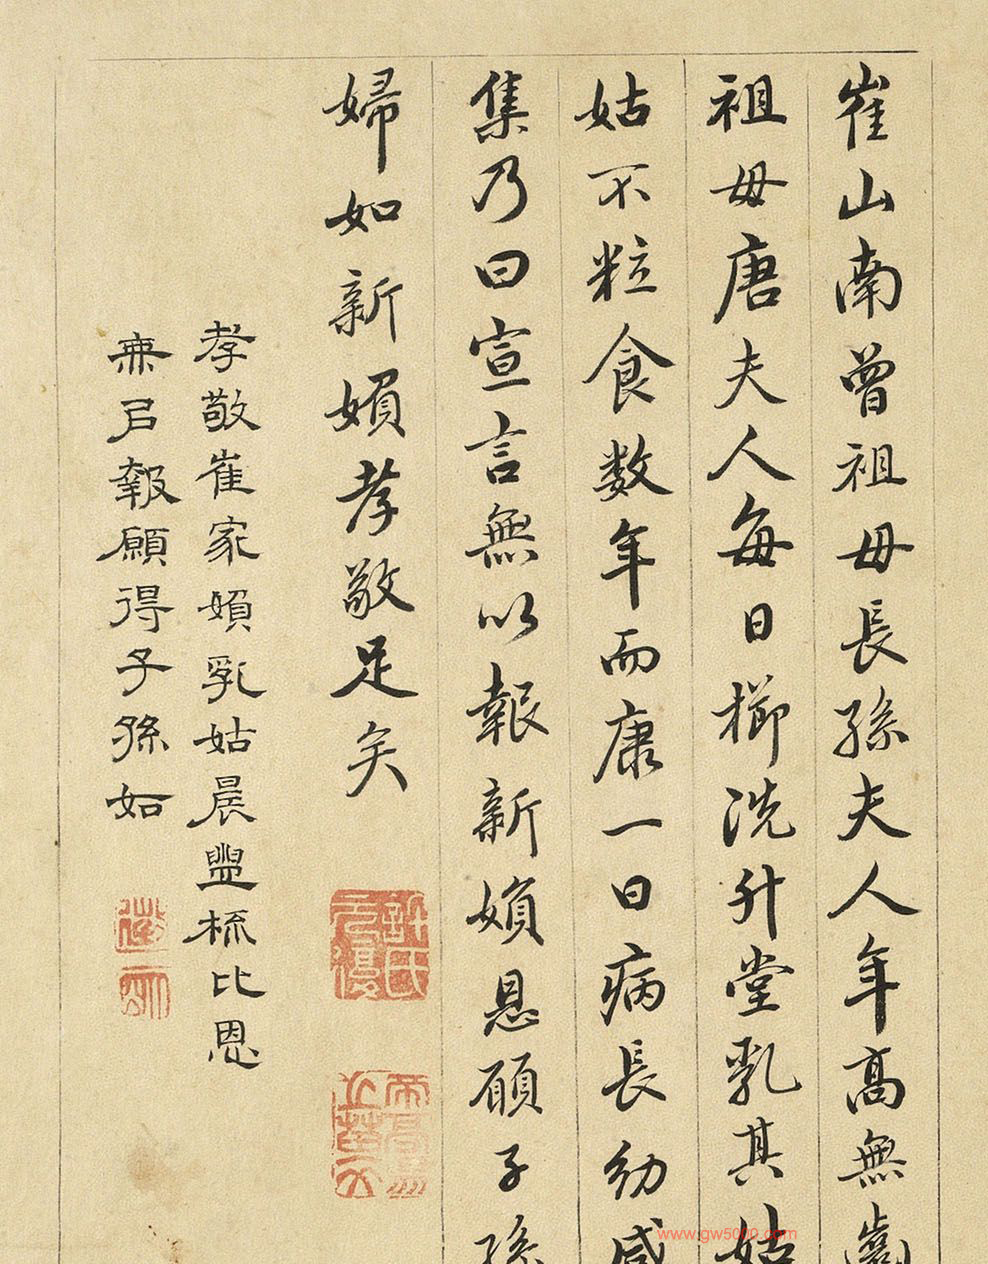 崔山南曾祖母長孫夫人年高無齒
祖母唐夫人每日櫛洗升堂乳其姑
姑不粒食数年而康一日病長幼咸
集乃曰宣言無以報新婦恩願子孫
婦如新婦孝敬足矣
孝敬崔家婦乳姑晨盥梳比恩
無以報願得子孫如
許氏
www.gw5000.com